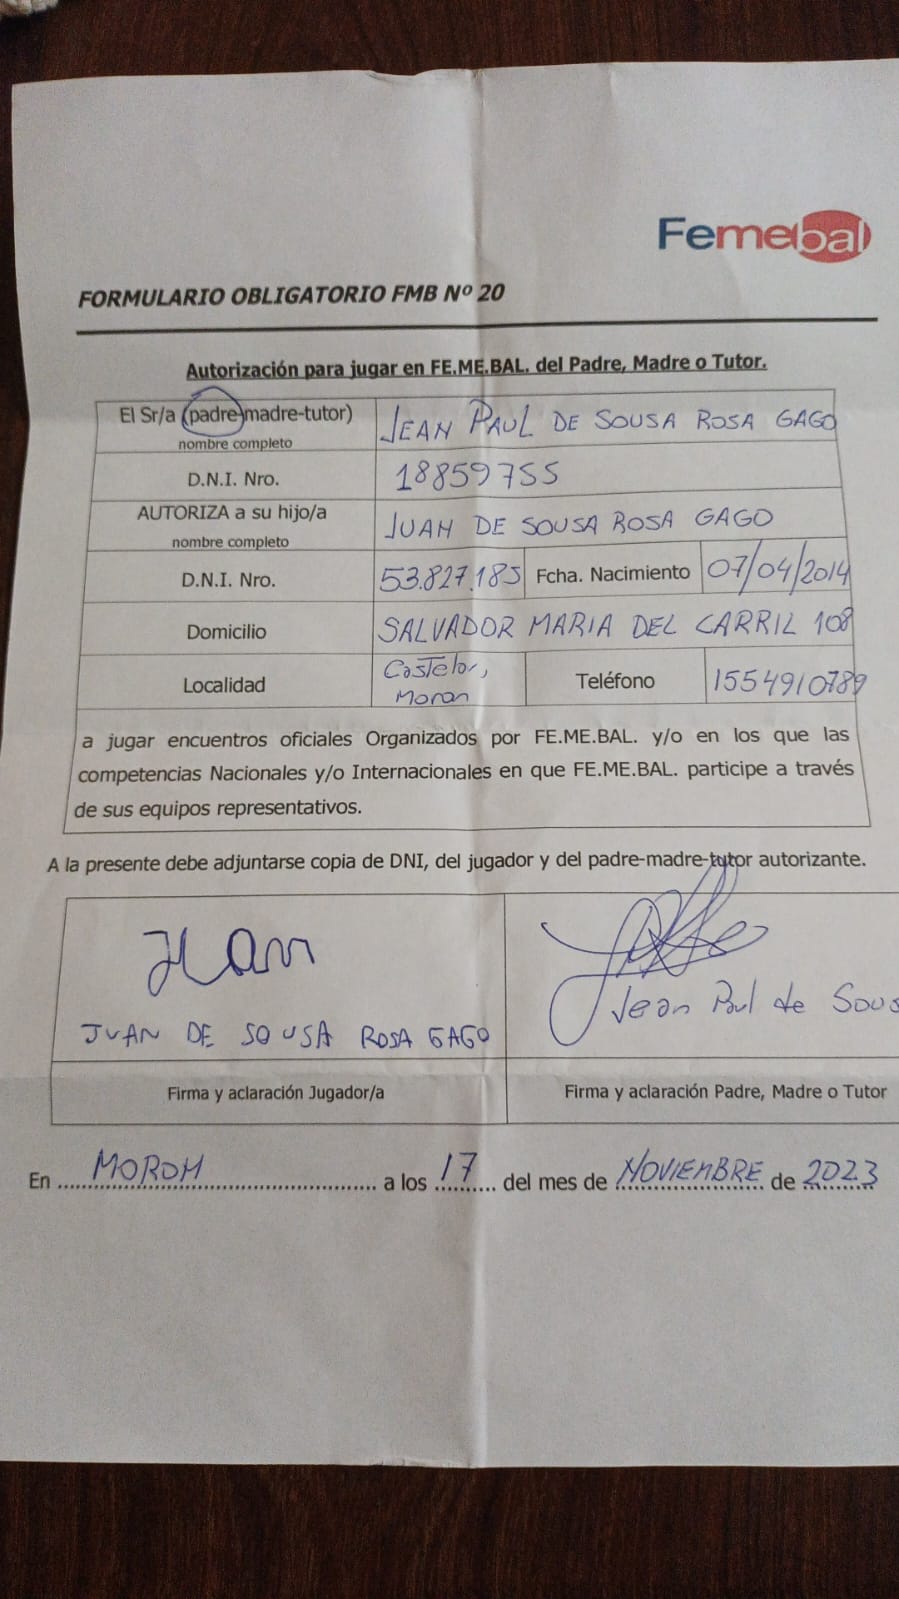 Femebal
FORMULARIO OBLIGATORIO FMB Nº 20
Autorización para jugar en FE.ME.BAL. del Padre, Madre o Tutor.
El Sr/a (padre-madre-tutor) JEAN PAUL DE SOUSA ROSA GAGO
nombre completo
D.N.I. Nro. 18859755
AUTORIZA a su hijo/a JUAN DE SOUSA ROSA GAGO
nombre completo
D.N.I. Nro. 53.827.185 Fcha. Nacimiento 07/04/2014
Domicilio SALVADOR MARIA DEL CARRIL 108
Localidad Castelar, Moron Teléfono 1554910789
a jugar encuentros oficiales Organizados por FE.ME.BAL. y/o en los que las
competencias Nacionales y/o Internacionales en que FE.ME.BAL. participe a través
de sus equipos representativos.
A la presente debe adjuntarse copia de DNI, del jugador y del padre-madre-tutor autorizante.
Juan
JUAN DE SOUSA ROSA GAGO Jean Paul de Sous
Firma y aclaración Jugador/a Firma y aclaración Padre, Madre o Tutor
En MORON a los 17 del mes de NOVIEMBRE de 2023